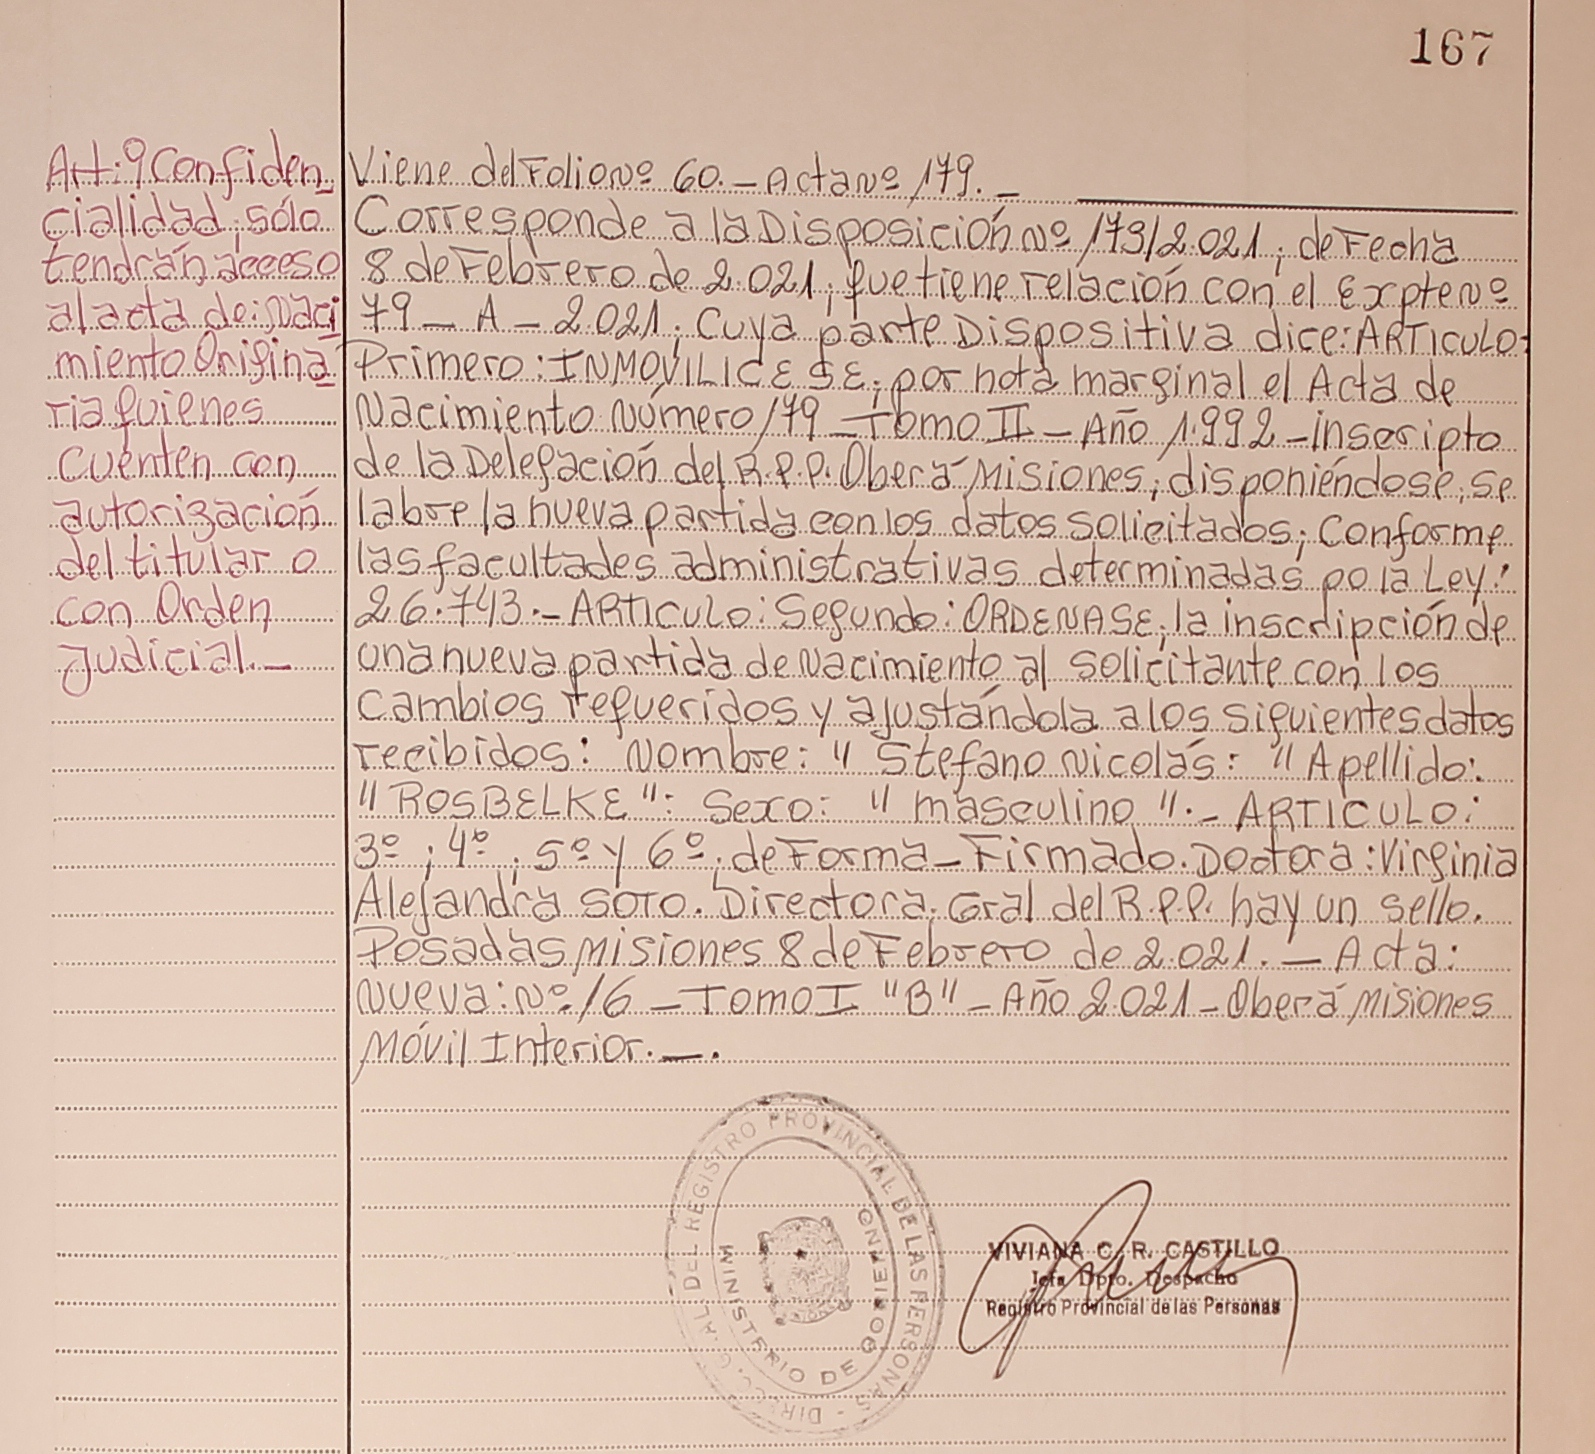 167
Art: 9 Confiden
cialidad, sólo
tendrán acceso
al acta de: Naci
miento Origina
ria quienes
Cuenten con
autorización
del titular o
con Orden
Judicial._
Viene del Folio Nº 60._ Acta Nº 179._
Corresponde a la Disposición Nº 173/2.021; de Fecha
8 de Febrero de 2.021; que tiene relación con el Expte Nº
79 _ A _ 2.021; Cuya parte Dispositiva dice: ARTICULO:
Primero: INMOVILICESE; por nota marginal el Acta de
Nacimiento Número 179 _ Tomo II _ Año 1.992 _ inscripto
de la Delegación del R.P.P. Oberá Misiones; disponiéndose, se
labre la nueva partida con los datos solicitados; Conforme
las facultades administrativas determinadas po la Ley:
26.743._ ARTICULO: Segundo: ORDENASE; la inscripción de
una nueva partida de Nacimiento al solicitante con los
Cambios requeridos y ajustándola a los siguientes datos
recibidos: Nombre: " Stefano Nicolás: " Apellido:
" ROSBELKE ": Sexo: " masculino ". _ ARTICULO:
3º ; 4º ; 5º y 6º; de Forma _ Firmado. Doctora: Virginia
Alejandra SOTO. Directora, Gral del R.P.P. hay un sello.
Posadas Misiones 8 de Febrero de 2.021. _ Acta:
Nueva: Nº 16 _ Tomo I "B" _ Año 2.021 _ Oberá Misiones
Móvil Interior. _ .
DIREC. G.AL DEL REGISTRO PROVINCIAL DE LAS PERSONAS -
MINISTERIO DE GOBIERNO
VIVIANA C. R. CASTILLO
Jefa Dpto. Despacho
Registro Provincial de las Personas